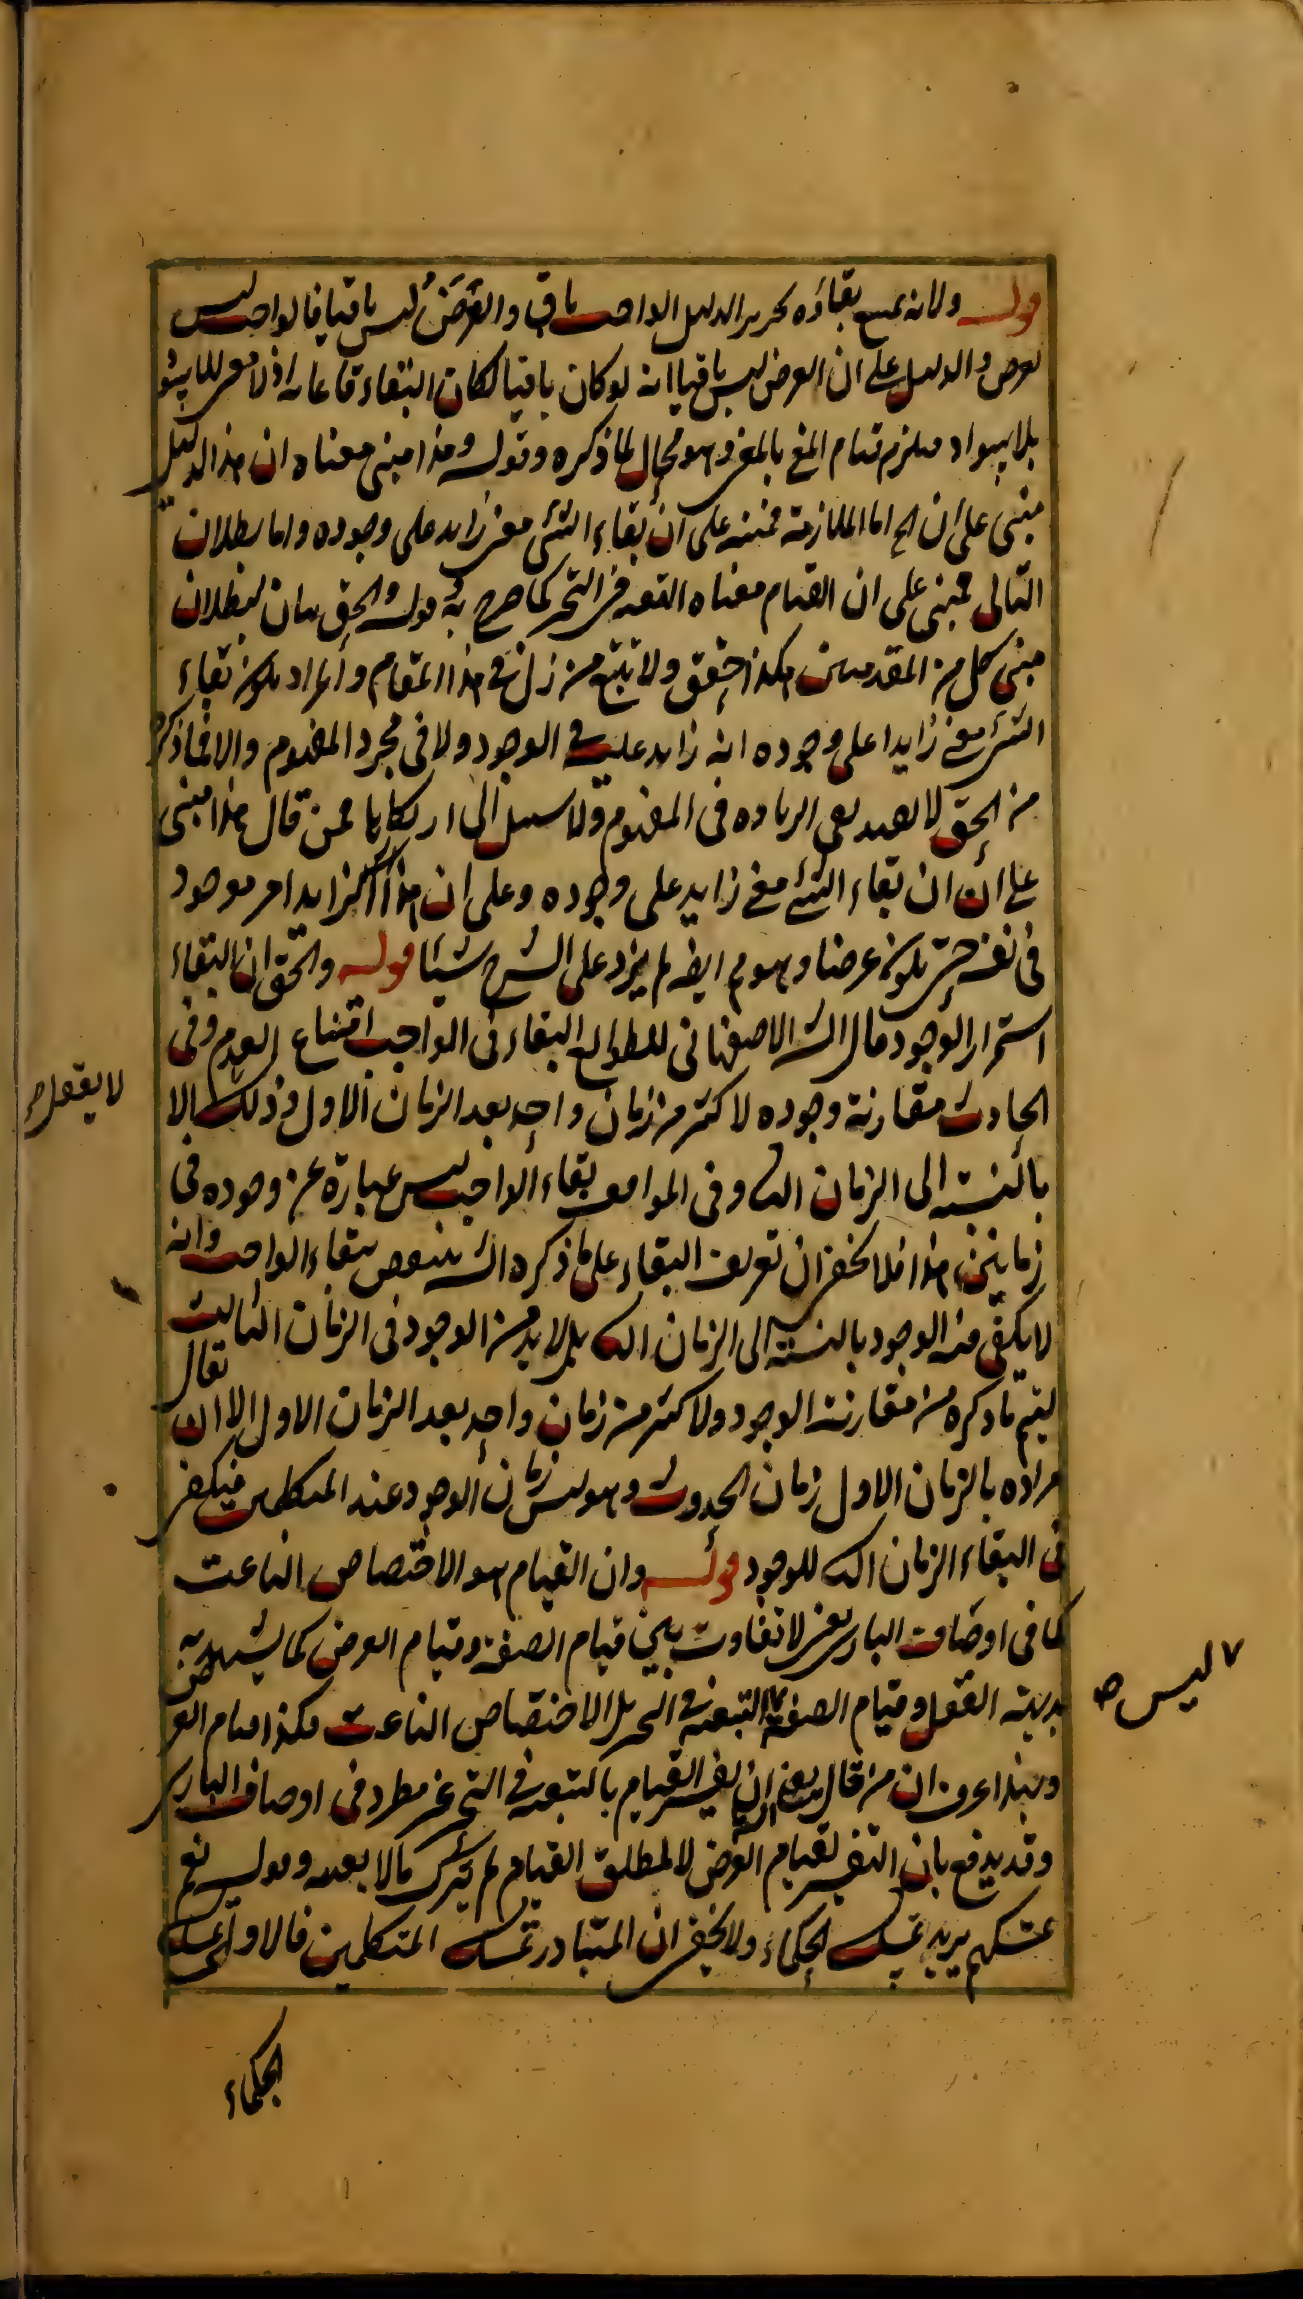 قوله ولانه يمتنع بقاؤه تحرير الدليل الواجب باق والعرض ليس باقيا فالواجب ليس
بعرض والدليل على ان العرض ليس باقيا انه لو كان باقيا لكان البقاء قائما به اذ لا معنى للابيض
بلا بياض فيلزم قيام المعنى بالمعنى وهو محال لما ذكره وقوله وهذا مبنى معناه ان هذا الدليل
مبنى على ان الخ اما الملازمة فمبنية على ان بقاء الشئ معنى زايد على وجوده واما بطلان
التالى فمبنى على ان القيام معناه التبعية فى التحيز كما صرح به وقوله والحق بيان لبطلان
مبنى كل من المقدمتين هكذا حقق ولا تتبع من زل فى هذا المقام والمراد بكون بقاء
الشئ معنى زايدا على وجوده انه زايد عليه فى الوجود ولا فى مجرد المفهوم والا فما ذكره
من الحق لا يفيد نفى الزيادة فى المفهوم ولا سبيل الى ارتكابها فمن قال هذا مبنى
على ان ان بقاء الشئ معنى زايد على وجوده وعلى ان هذا الزايد امر موجود
فى نفسه حتى يكون عرضا وهو م ايضا لم يزد على الشرح شيئا قوله والحق ان البقاء
استمرار الوجود قال الش الاصفهانى للطوالع البقاء فى الواجب امتناع العدم وفى
الحادث مقارنة وجوده لاكثر من زمان واحد بعد الزمان الاول وذلك الا
لا يعقل صح
بالنسبة الى الزمان الثا وفى المواقف بقاء الواجب ليس عبارة عن وجوده فى
زمانين هذا فلا يخفى ان تعريف البقاء على ما ذكره الش ينتقض ببقاء الواجب وانه
لا يكفى فيه الوجود بالنسبة الى الزمان الثا بل لا بد من الوجود فى الزمان الثالث
ليتم ما ذكره من مقارنة الوجود ولاكثر من زمان واحد بعد الزمان الاول الا ان يقال
مراده بالزمان الاول زمان الحدوث وهو ليس زمان الوجود عند المتكلمين فيكفى
فى البقاء الزمان الثا للوجود قوله وان القيام هو الاختصاص الناعت
كما فى اوصاف البارى يعنى لا تفاوت بين قيام الصفة وقيام العرض كما يشهد به
بديهة العقل وقيام الصفة التبعية فى التحيز بل الاختصاص الناعت فكذا قيام العرض
ليس صح
وبهذا اعرف ان من قال يعنى ان تفسير القيام بالتبعية فى التحيز غير مطرد فى اوصاف البارى
وقد يدفع بان التفسير لقيام العرض لا لمطلق القيام لم يترك مالا يعنيه وقوله نعم
تمسكهم يريد تمسك الحكماء ولا يخفى ان المتبادر تمسك المتكلمين فالاولى تمسك
الحكماء